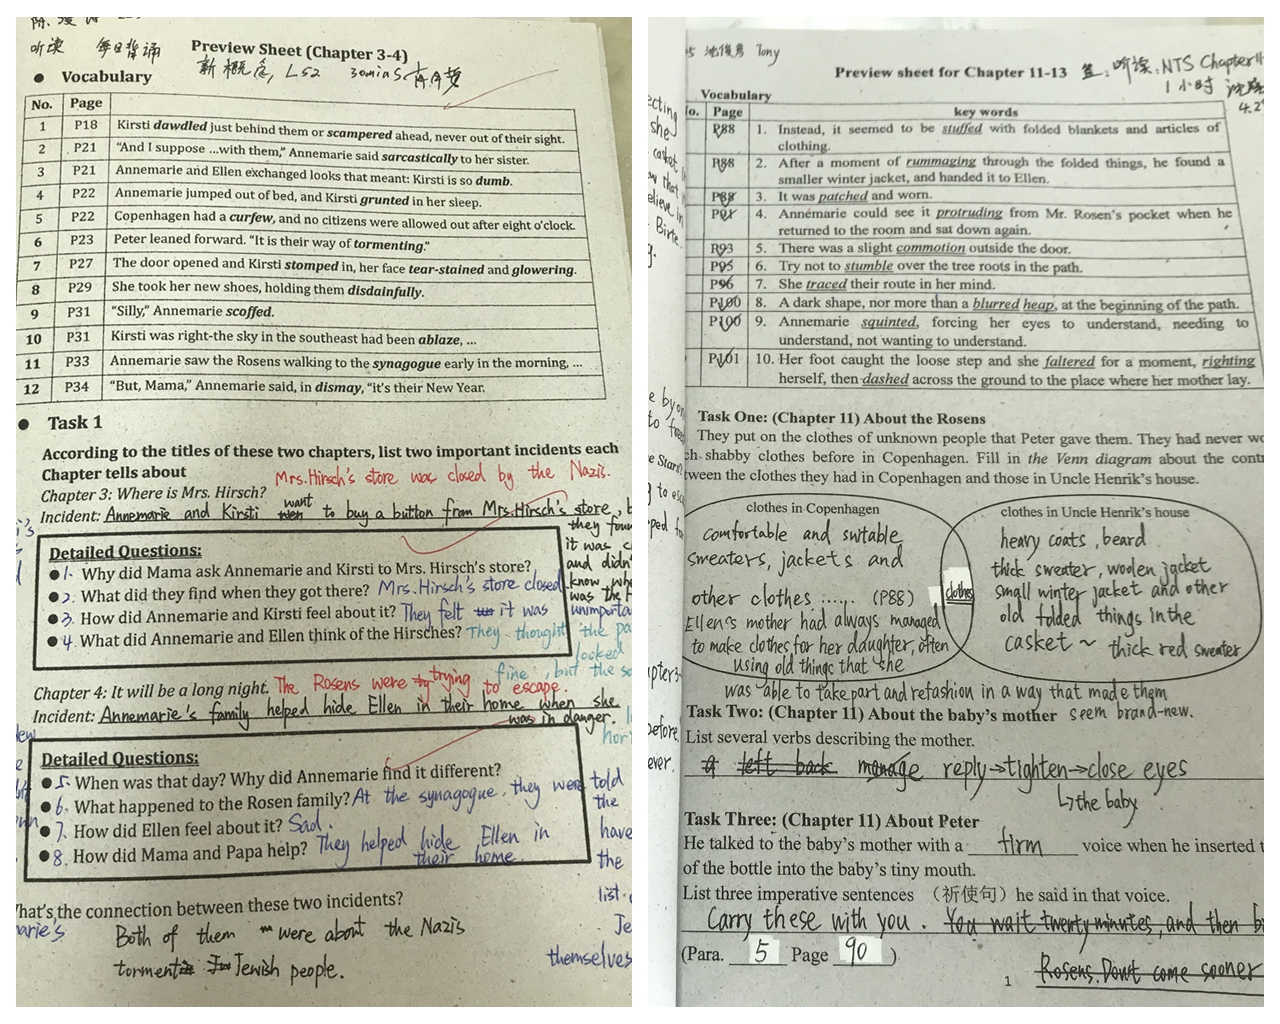 听读 每日背诵
Preview Sheet (Chapter 3-4)
新概念, L52 30mins.
● Vocabulary
No. Page
1 P18 Kirsti dawdled just behind them or scampered ahead, never out of their sight.
2 P21 "And I suppose ...with them," Annemarie said sarcastically to her sister.
3 P21 Annemarie and Ellen exchanged looks that meant: Kirsti is so dumb.
4 P22 Annemarie jumped out of bed, and Kirsti grunted in her sleep.
5 P22 Copenhagen had a curfew, and no citizens were allowed out after eight o'clock.
6 P23 Peter leaned forward. "It is their way of tormenting."
7 P27 The door opened and Kirsti stomped in, her face tear-stained and glowering.
8 P29 She took her new shoes, holding them disdainfully.
9 P31 "Silly," Annemarie scoffed.
10 P31 Kirsti was right-the sky in the southeast had been ablaze, ...
11 P33 Annemarie saw the Rosens walking to the synagogue early in the morning, ...
12 P34 "But, Mama," Annemarie said, in dismay, "it's their New Year.
● Task 1
According to the titles of these two chapters, list two important incidents each
Chapter tells about
Mrs.Hirsch's store was closed by the Nazis.
Chapter 3: Where is Mrs. Hirsch?
Incident: Annemarie and Kirsti want to buy a button from Mrs.Hirsch's store,
they
it was
and didn'
know
was the
Detailed Questions:
●1. Why did Mama ask Annemarie and Kirsti to Mrs. Hirsch's store?
●2. What did they find when they got there? Mrs.Hirsch's store closed
●3. How did Annemarie and Kirsti feel about it? They felt it was unimporta
●4. What did Annemarie and Ellen think of the Hirsches? They thought the
looked
fine, but the
Chapter 4: It will be a long night. The Rosens were trying to escape.
Incident: Annemarie's family helped hide Ellen in their home when she
was in danger.
Detailed Questions:
●5. When was that day? Why did Annemarie find it different?
●6. What happened to the Rosen family? At the synagogue, they were told
the
●7. How did Ellen feel about it? Sad.
have
●8. How did Mama and Papa help? They helped hide Ellen in
their home.
the
list.
What's the connection between these two incidents?
Both of them were about the Nazis
Je
torment Jewish people.
themselves
Tony
Preview sheet for Chapter 11-13 签: 听读: NTS Chapter 11
1小时
4.2
Vocabulary
No. Page key words
P88 1. Instead, it seemed to be stuffed with folded blankets and articles of
clothing.
P88 2. After a moment of rummaging through the folded things, he found a
smaller winter jacket, and handed it to Ellen.
P88 3. It was patched and worn.
P91 4. Annemarie could see it protruding from Mr. Rosen's pocket when he
returned to the room and sat down again.
P93 5. There was a slight commotion outside the door.
P95 6. Try not to stumble over the tree roots in the path.
P96 7. She traced their route in her mind.
P100 8. A dark shape, nor more than a blurred heap, at the beginning of the path.
P100 9. Annemarie squinted, forcing her eyes to understand, needing to
understand, not wanting to understand.
P101 10. Her foot caught the loose step and she faltered for a moment, righting
herself, then dashed across the ground to the place where her mother lay.
Task One: (Chapter 11) About the Rosens
They put on the clothes of unknown people that Peter gave them. They had never wo
ch shabby clothes before in Copenhagen. Fill in the Venn diagram about the contr
tween the clothes they had in Copenhagen and those in Uncle Henrik's house.
clothes in Copenhagen
comfortable and suitable
sweaters, jackets and
other clothes ...... (P88)
Ellen's mother had always managed
to make clothes for her daughter, often
using old things that she
was able to take part and refashion in a way that made them
seem brand-new.
clothes
clothes in Uncle Henrik's house
heavy coats, beard
thick sweater, woolen jacket
small winter jacket and other
old folded things in the
casket ~ thick red sweater
Task Two: (Chapter 11) About the baby's mother
List several verbs describing the mother.
left back manage reply→tighten→close eyes
↳the baby
Task Three: (Chapter 11) About Peter
He talked to the baby's mother with a firm voice when he inserted t
of the bottle into the baby's tiny mouth.
List three imperative sentences （祈使句）he said in that voice.
Carry these with you. You wait twenty minutes, and then
(Para. 5 Page 90 )
Rosens. Don't come sooner
1